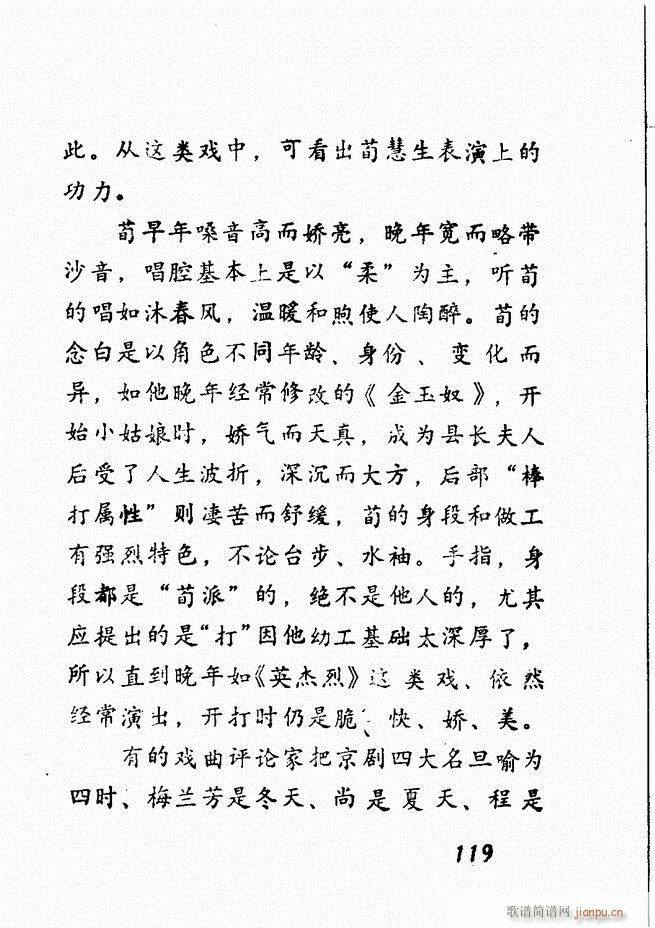 此。从这类戏中，可看出荀慧生表演上的
功力。
荀早年嗓音高而娇亮，晚年宽而略带
沙音，唱腔基本上是以“柔”为主，听荀
的唱如沐春风，温暖和煦使人陶醉。荀的
念白是以角色不同年龄、身份、变化而
异，如他晚年经常修改的《金玉奴》，开
始小姑娘时，娇气而天真，成为县长夫人
后受了人生波折，深沉而大方，后部“棒
打属性”则凄苦而舒缓，荀的身段和做工
有强烈特色，不论台步、水袖。手指，身
段都是“荀派”的，绝不是他人的，尤其
应提出的是“打”因他幼工基础太深厚了，
所以直到晚年如《英杰烈》这类戏、依然
经常演出，开打时仍是脆、快、娇、美。
有的戏曲评论家把京剧四大名旦喻为
四时、梅兰芳是冬天、尚是夏天、程是
119
歌谱简谱网 jianpu.cn